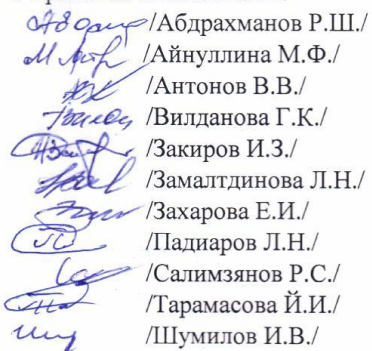 /Абдрахманов Р.Ш./
/Айнуллина М.Ф./
/Антонов В.В./
/Вилданова Г.К./
/Закиров И.З./
/Замалтдинова Л.Н./
/Захарова Е.И./
/Падиаров Л.Н./
/Салимзянов Р.С./
/Тарамасова Й.И./
/Шумилов И.В./